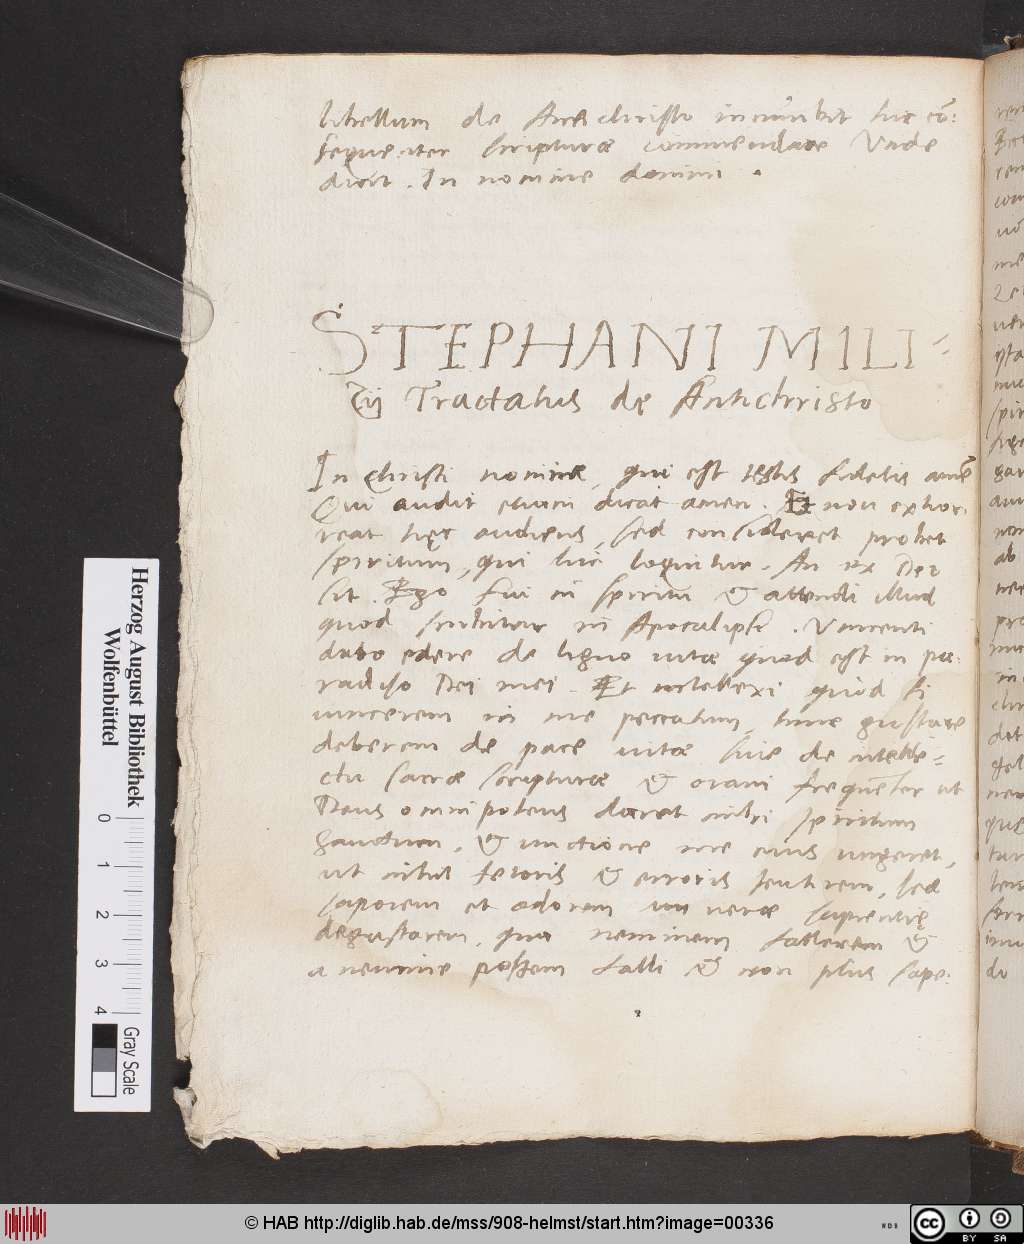 libellum de Antichristo incumbit hic cō:
sequenter scripturæ commendare Unde
dicit. In nomine domini.
STEPHANI MILI=
Tij Tractatus dę Antichristo
In Christi nomine, qui est testis fidelis amē
Qui audit etiam dicat amen. Et non exhor:
reat hęc audiens, sed consideret probet
spiritum, qui hic loquitur. An ex Dei
sit. Ego fui in spiritu & attendi illud
quod scribitur in Apocalipsi. Vincenti
dabo edere de ligno vitæ quod est in pa:
radiso Dei mei. Et intellexi quòd si
vincerem in me peccatum, tunc gustare
deberem de pace vitæ sive de intelle=
ctu sacræ scripturæ & oravi frequēter ut
Deus omnipotens daret mihi spiritum
sanctum, & unctione me eius ungeret,
ut nihil fetoris & erroris sentirem, sed
saporem et odorem veræ sapientię
degustarem, quo neminem fallerem &
a nemine possem falli & non plus sape:
Herzog August Bibliothek
Wolfenbüttel
0 1 2 3 4
Gray Scale
© HAB http://diglib.hab.de/mss/908-helmst/start.htm?image=00336
WDB
cc BY SA